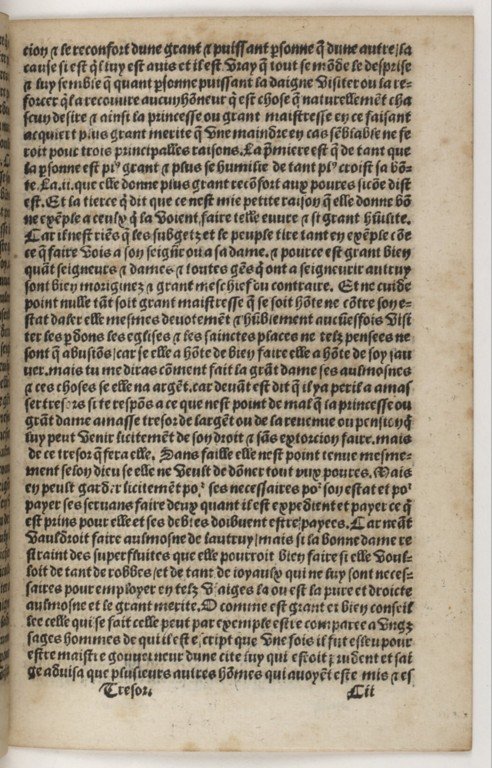 cion ⁊ le reconfort dune grant ⁊ puissant ꝑsonne q̃ dune autre/la
cause si est q̃l luy est auis et il est vray q̃ tout se mõde le desprise
⁊ luy semble q̃ quant ꝑsonne puissant la daigne visiter ou la re-
forcer q̃l a recouure aucun hõneur q̃ est chose q̃ naturellemẽt cha
scun desire ⁊ ainsi la princesse ou grant maistresse en ce faisant
acquirt plus grant merite q̃ vne maindre en cas sẽblable ne fe
roit pour trois principalles raisons. La p̃miere est q̃ de tant que
la ꝑsonne est plꝰ grant ⁊ plus se humilie de tant plꝰ croist sa bõ-
te. La.ii. que elle donne plus grant recõfort aux poures sicõe dist
est. Et la tierce q̃ dit que ce nest mie petite raison q̃ elle donne bõ
ne exẽple a ceulx q̃ la voient faire telle euure ⁊ si grant hũilite.
Car il nest riẽs q̃ les subgetz et le peuple tire tant en exẽple cõe
ce q̃ faire vois a son seignr̃ ou a sa dame. ⁊ pource est grant bien
quãt seigneurs ⁊ dames ⁊ toutes gẽs q̃ ont a seigneurir autruy
sont bien moriginez ⁊ grant meschief du contraire. Et ne cuide
point nulle tãt soit grant maistresse q̃ se soit hõte ne cõtre son e-
stat daler elle mesmes deuotemẽt ⁊ hũblement aucũesfois visi
ter les p̃dons les eglises ⁊ les sainctes places ne telz pensees ne
sont q̃ abusiõs/car se elle a hõte de bien faire elle a hõte de soy sau
uer. mais tu me diras cõment fait la grãt dame ses aulmosnes
⁊ ces choses se elle na argẽt. car deuãt est dit q̃ il ya peril a amas
ser tresors si te respõs a ce que nest point de mal q̃ la princesse ou
grãt dame amasse tresor de largẽt ou de la reuenue ou pension q̃
luy peult venir licitemẽt de son droit ⁊ sãs extorcion faire. mais
de ce tresor q̃ fera elle. Sans faille elle nest point tenue mesme-
ment selon dieu se elle ne veult de dõner tout aux poures. Mais
en peult garder licitemẽt poꝛ̃ ses necessaires poꝛ̃ son estat et poꝛ̃
payer ses seruans faire deux quant il est expedient et payer ce q̃
est prins pour elle et ses debtes doibuent estre payees. Car neãt
vauldroit faire aulmosne de lautruy/mais si la bonne dame re
straint des superfluites que elle pourroit bien faire si elle voul-
loit de tant de robbes/et de tant de ioyaulx qui ne luy sont neces-
saires pour employer en telz vsaiges la ou est la pure et droicte
aulmosne et le grant merite. O comme est grant et bien conseil
lee celle qui se fait celle peut par exemple estre comparee a vngz
sages hommes de qui il est escript que vne fois il fut esleu pour
estre maistre gouuerneur dune cite luy qui estoit prudent et sai
ge aduisa que plusieurs aultres hõmes qui auoyẽt este mis ⁊ es
Tresor. Cii